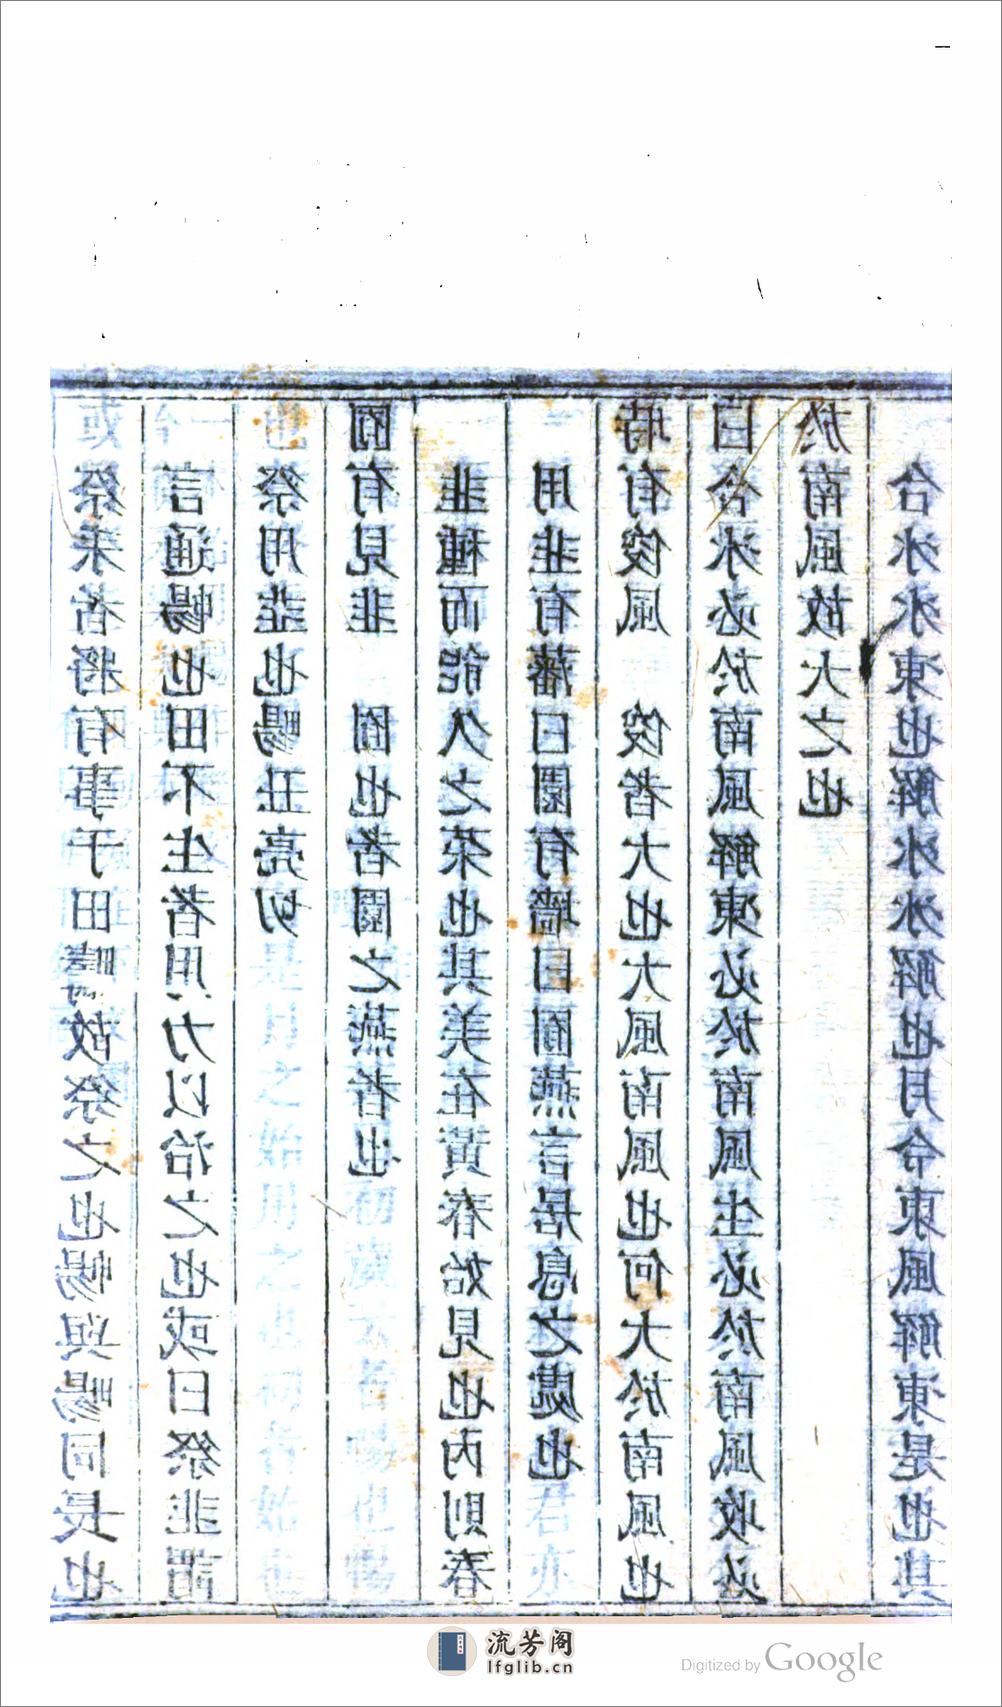 祭耒者將有事于田疇故祭之也暢與畼同長也
言通暢也田不生者用力以治之也或曰祭韭謂
祭用韭也暢丑亮切
囿有見韭　囿也者園之燕者也
韭種而能久之菜也其美在黃春始見也內則春
用韭有藩曰園有墻曰囿燕言居息之處也
時有俊風　俊者大也大風南風也何大於南風也
曰合冰必於南風解凍必於南風生必於南風收必
於南風故大之也
合冰冰凍也解冰冰解也月令東風解凍是也其
流芳阁
lfglib.cn
Digitized by Google